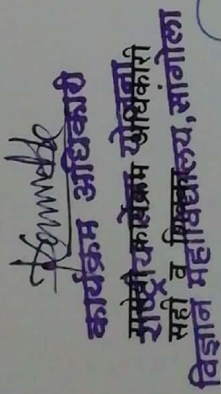 कार्यक्रम अधिकारी
राष्ट्रीय सेवा योजना
कार्यक्रम अधिकारी
सही व शिक्का
विज्ञान महाविद्यालय, सांगोला